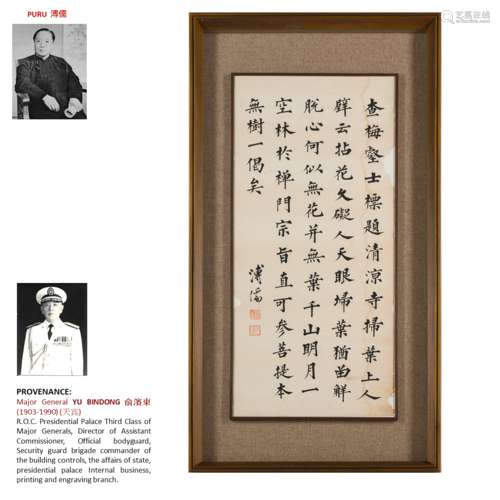 PURU 溥儒
查梅壑士標題清涼寺掃葉上人
壁云拈花久礙人天眼埽葉猶苗解
脫心何似無花并無葉千山明月一
空林於禅門宗旨直可參菩提本
無樹一偈矣
溥儒
PROVENANCE:
Major General YU BINDONG 俞濱東
(1903-1990)
R.O.C. Presidential Palace Third Class of
Major Generals, Director of Assistant
Commissioner, Official bodyguard,
Security guard brigade commander of
the building controls, the affairs of state,
presidential palace Internal business,
printing and engraving branch.